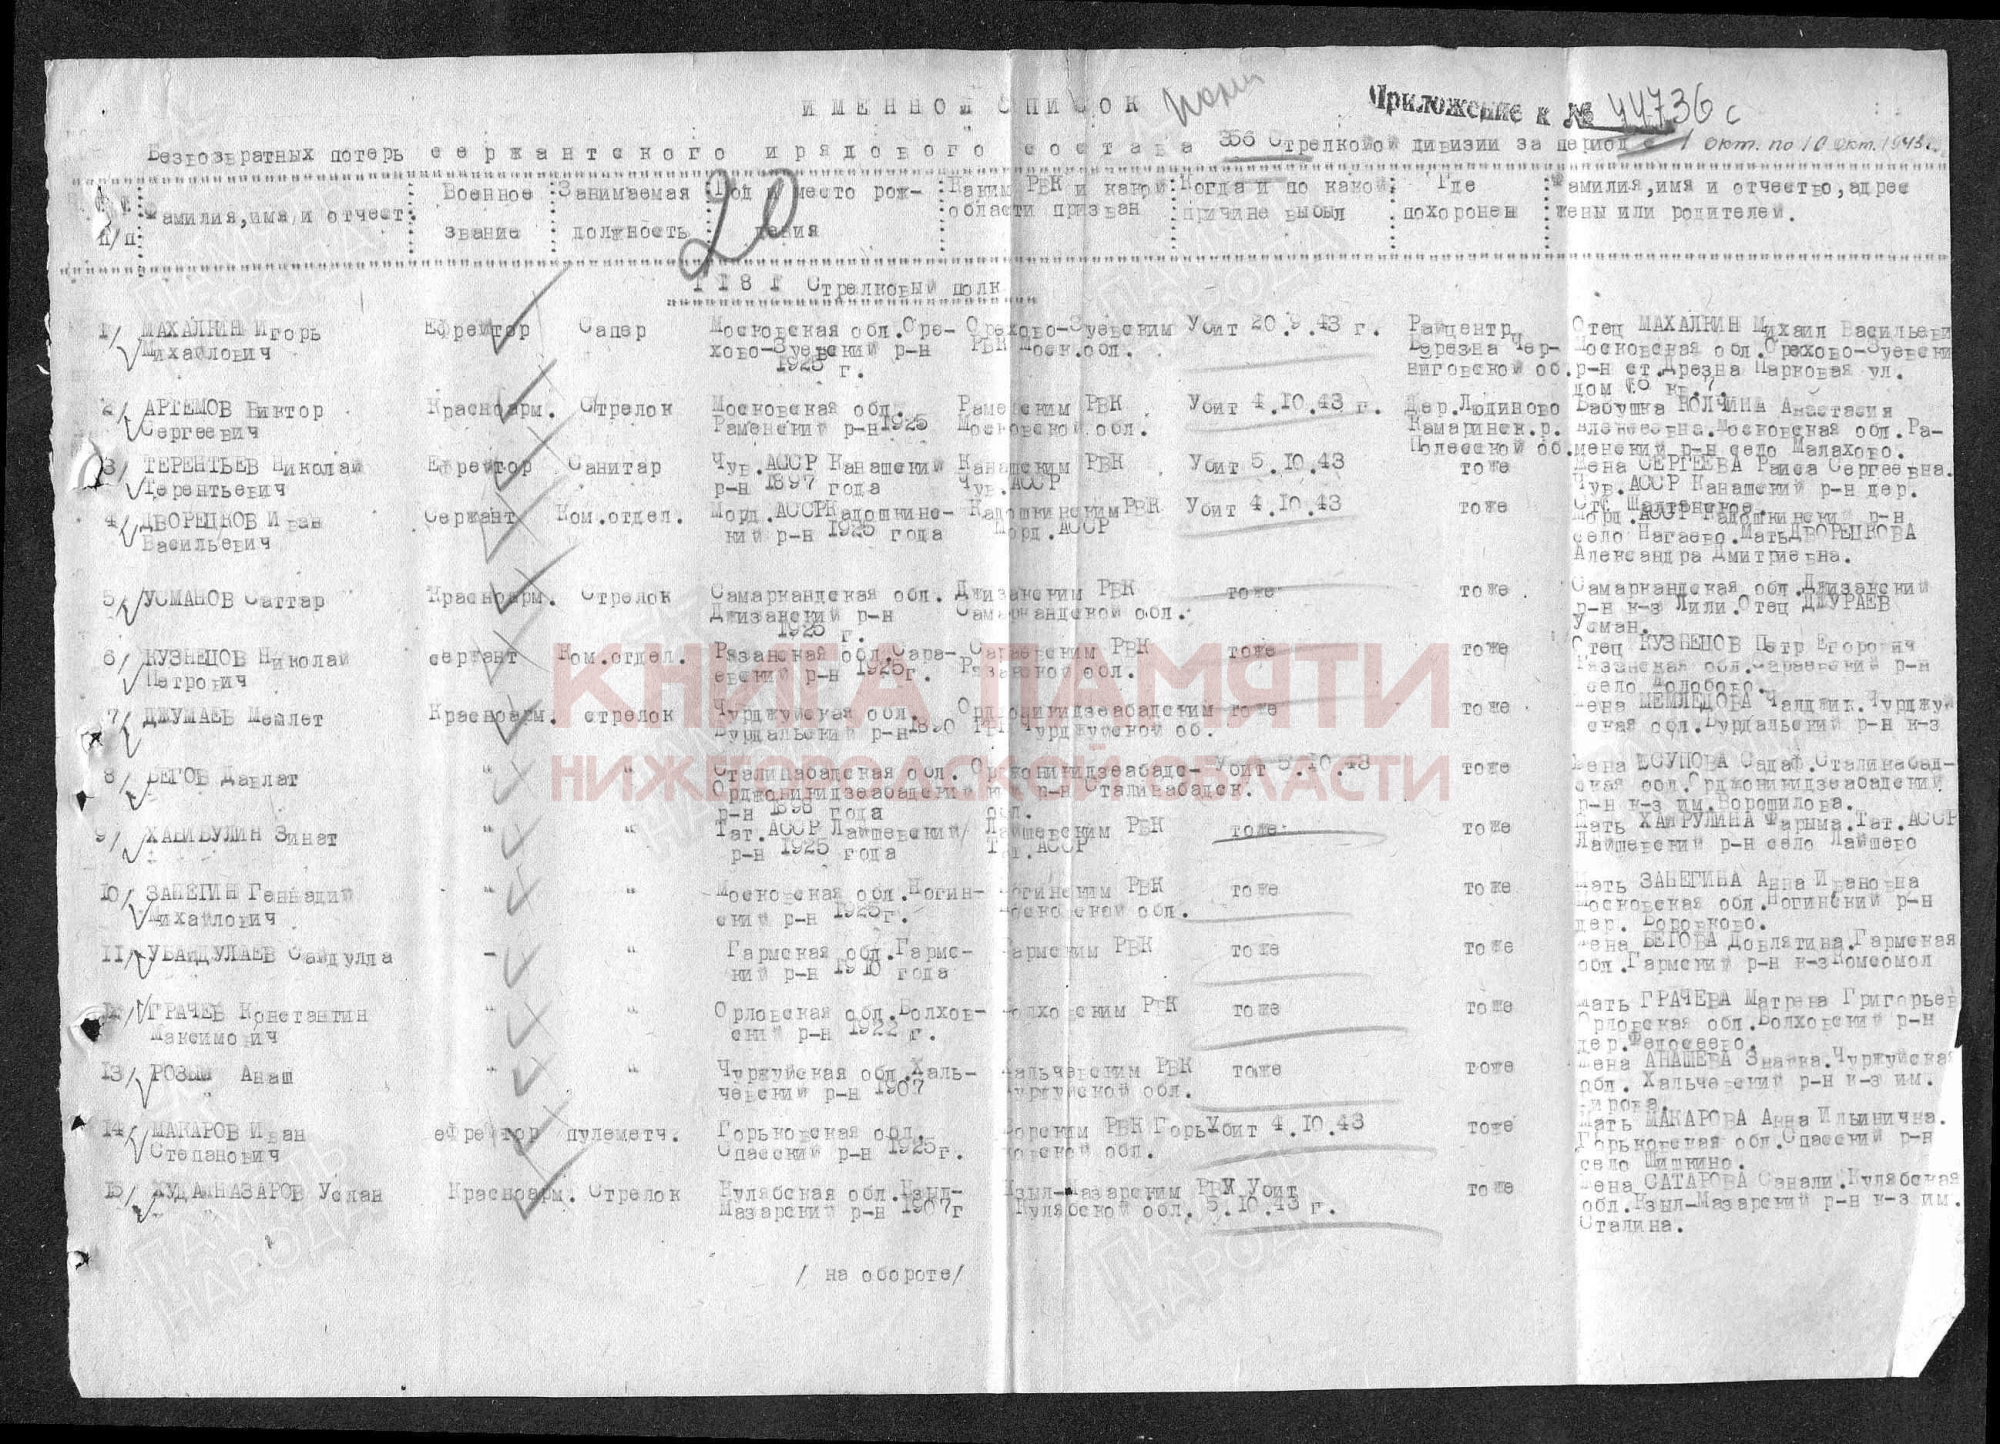 ИМЕННОЙ СПИСОК
Приложение к № 44736с
Безвозвратных потерь сержантского и рядового состава 356 Стрелковой дивизии за период с 1 окт. по 10 окт. 1943г.
20
п/п
Фамилия, имя и отчест.
Военное звание
Занимаемая должность
Год и место рождения
Каким РВК и какой области призван
Когда и по какой причине выбыл
Где похоронен
Фамилия, имя и отчество, адрес жены или родителей.
1181 Стрелковый полк
1/ МАХАЛКИН Игорь Ефрейтор Сапер Московская обл. Оре- Орехово-Зуевским Убит 20.9.43 г. Райцентр Отец МАХАЛКИН Михаил Васильеви
Михайлович хово-Зуевский р-н РВК Моск.обл. Березна Чер- Московская обл. Орехово-Зуевски
1925 г. ниговской об. р-н ст. Дрезна Парковая ул.
2/ АРТЕМОВ Виктор Красноарм. Стрелок Московская обл. Раменским РВК Убит 4.10.43 г. Дер. Людиново Бабушка КОЛЧИНА Анастасия
Сергеевич Раменский р-н 1925 Московской обл. Камаринск.р. Алексеевна. Московская обл. Ра-
Полесской об. менский р-н село Малахово.
3/ ТЕРЕНТЬЕВ Николай Ефрейтор Санитар Чув. АССР Канашский Канашским РВК Убит 5.10.43 тоже Жена СЕРГЕЕВА Раиса Сергеевна.
Терентьевич р-н 1897 года Чув. АССР Чув. АССР Канашский р-н дер.
4/ ДВОРЕЦКОВ Иван Сержант Ком.отдел. Морд. АССР Кадошкинс- Кадошкинским РВК Убит 4.10.43 тоже Морд. АССР Кадошкинский р-н
Васильевич кий р-н 1925 года Морд. АССР село Нагаево. Мать ДВОРЕЦКОВА
Александра Дмитриевна.
5/ УСМАНОВ Саттар Красноарм. Стрелок Самаркандская обл. Джизакским РВК тоже тоже Самаркандская обл. Джизакский
Джизакский р-н Самаркандской обл. р-н к-з Лили. Отец ДЖУРАЕВ
1925 г. Усман.
6/ КУЗНЕЦОВ Николай сержант Ком.отдел. Рязанская обл. Сара- Сараевским РВК тоже тоже Отец КУЗНЕЦОВ Петр Егорович
Петрович евский р-н 1925г. Рязанской обл. Рязанская обл. Сараевский р-н
7/ ДЖУМАЕВ Мемлет Красноарм. стрелок Чурджуйская обл. Орджоникидзеабадским тоже тоже Жена МЕМЛЕДОВА Чалджик. Чурджуй
Бурдальский р-н 1890 РВК Чурджуйской об. ская обл. Бурдальский р-н к-з
8/ БЕГОВ Давлат " " Сталинабадская обл. Орджоникидзеабадс- Убит 5.10.43 тоже Жена ЮСУПОВА Садаф. Сталинабад-
Орджоникидзеабадский ким р-н Сталинабадск. ская обл. Орджоникидзеабадский
р-н 1898 года обл. р-н к-з им. Ворошилова.
9/ ХАБИБУЛИН Зинат " " Тат. АССР Лаишевский Лаишевским РВК тоже тоже Мать ХАЙРУЛИНА Фарыма. Тат. АССР
р-н 1925 года Тат. АССР Лайшевский р-н село Лайшево
10/ ЗАБЕГИН Геннадий " " Московская обл. Ногин- Ногинским РВК тоже тоже Мать ЗАБЕГИНА Анна Ивановна
Михайлович ский р-н 1925г. Московской обл. Московская обл. Ногинский р-н
дер. Боровково.
11/ УБАЙДУЛАЕВ Сайдулла - " Гармская обл. Гармс- Гармским РВК тоже тоже Жена БЕГОВА Довлятина. Гармская
кий р-н 1910 года обл. Гармский р-н к-з Комсомол
12/ ГРАЧЕВ Константин " " Орловская обл. Болхов- Болховским РВК тоже тоже Мать ГРАЧЕВА Матрена Григорьев
Максимович ский р-н 1922 г. Орловская обл. Болховский р-н
дер. Федосеево.
13/ РОЗЫЫ Анаш " " Чуржуйская обл. Халь- Хальчевским РВК тоже тоже Жена АНАШЕВА Знатка. Чуржуйская
чевский р-н 1907 Чуржуйской обл. обл. Хальчевский р-н к-з им.
Кирова.
14/ МАКАРОВ Иван ефрейтор пулеметч. Горьковская обл. Борским РВК Горь- Убит 4.10.43 тоже Мать МАКАРОВА Анна Ильинична.
Степанович Спасский р-н 1925г. ковской обл. Горьковская обл. Спасский р-н
село Шишкино.
15/ ХУДАЙНАЗАРОВ Услан Красноарм. Стрелок Кулябская обл. Кзыл- Кзыл-Мазарским РВК Убит тоже Жена САТАРОВА Санали. Кулябская
Мазарский р-н 1907г Кулябской обл. 5.10.43 г. обл. Кзыл-Мазарский р-н к-з им.
Сталина.
/ на обороте/
КНИГА ПАМЯТИ
НИЖЕГОРОДСКОЙ ОБЛАСТИ
ПАМЯТЬ НАРОДА